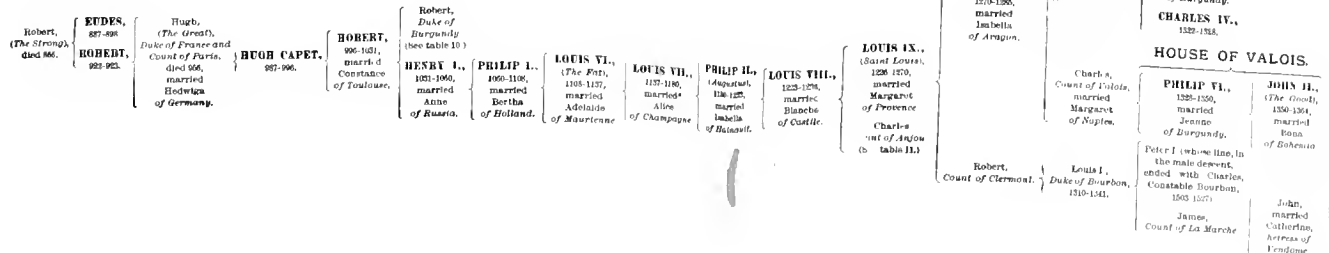 Robert,
(The Strong),
died 866.
EUDES,
887-898
ROBERT,
922-923.
Hugh,
(The Great),
Duke of France and
Count of Paris,
died 956,
married
Hedwiga
of Germany.
HUGH CAPET,
987-996.
ROBERT,
996-1031,
married
Constance
of Toulouse,
Robert,
Duke of
Burgundy
(See table 10)
HENRY I.,
1031-1060,
married
Anne
of Russia.
PHILIP I.,
1060-1108,
married
Bertha
of Holland.
LOUIS VI.,
(The Fat),
1108-1137,
married
Adelaide
of Maurienne
LOUIS VII.,
1137-1180,
married
Alice
of Champagne
PHILIP II.,
(Augustus),
married
Isabella
of Hainault.
LOUIS VIII.,
married
Blanche
of Castile.
LOUIS IX.,
(Saint Louis),
1226 1270,
married
Margaret
of Provence
Charles
of Anjou
table 11.)
1270-1285,
married
Isabella
of Aragon.
Robert,
Count of Clermont.
Charles,
Count of Valois,
married
Margaret
of Naples.
Louis I,
Duke of Bourbon,
1310-1341.
of Burgundy.
CHARLES IV.,
1322-1328.
HOUSE OF VALOIS.
PHILIP VI.,
1328-1350,
married
Jeanne
of Burgundy.
JOHN II.,
(The Good),
1350-1364,
married
Bona
of Bohemia
Peter I (whose line, in
the male descent,
ended with Charles,
Constable Bourbon,
1503 1527)
James,
Count of La Marche
John,
married
Catherine,
heiress of
Vendome